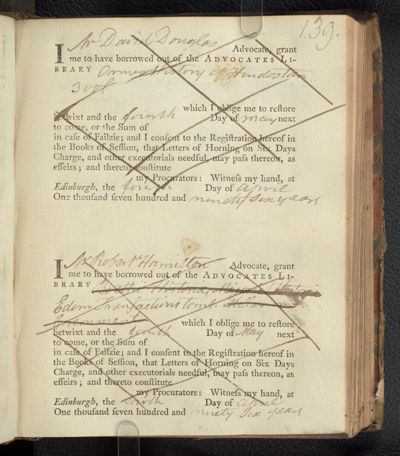 139.
I Mr David Douglas Advocate, grant
me to have borrowed out of the ADVOCATES LI-
BRARY Ormes History of Hindostan
3 vol
which I oblige me to restore
betwixt and the fourth Day of May next
to come, or the Sum of
in case of Failzie; and I consent to the Registration hereof in
the Books of Session, that Letters of Horning on Six Days
Charge, and other executorials needful, may pass thereon, as
effeirs; and thereto constitute
my Procurators: Witness my hand, at
Edinburgh, the fourth Day of April
One thousand seven hundred and ninety Six years
I Mr Robert Hamilton Advocate, grant
me to have borrowed out of the ADVOCATES LI-
BRARY
Edinr Transactions
which I oblige me to restore
betwixt and the fourth Day of May next
to come, or the Sum of
in case of Failzie; and I consent to the Registration hereof in
the Books of Session, that Letters of Horning on Six Days
Charge, and other executorials needful, may pass thereon, as
effeirs; and thereto constitute
my Procurators: Witness my hand, at
Edinburgh, the fourth Day of April
One thousand seven hundred and ninety Six years